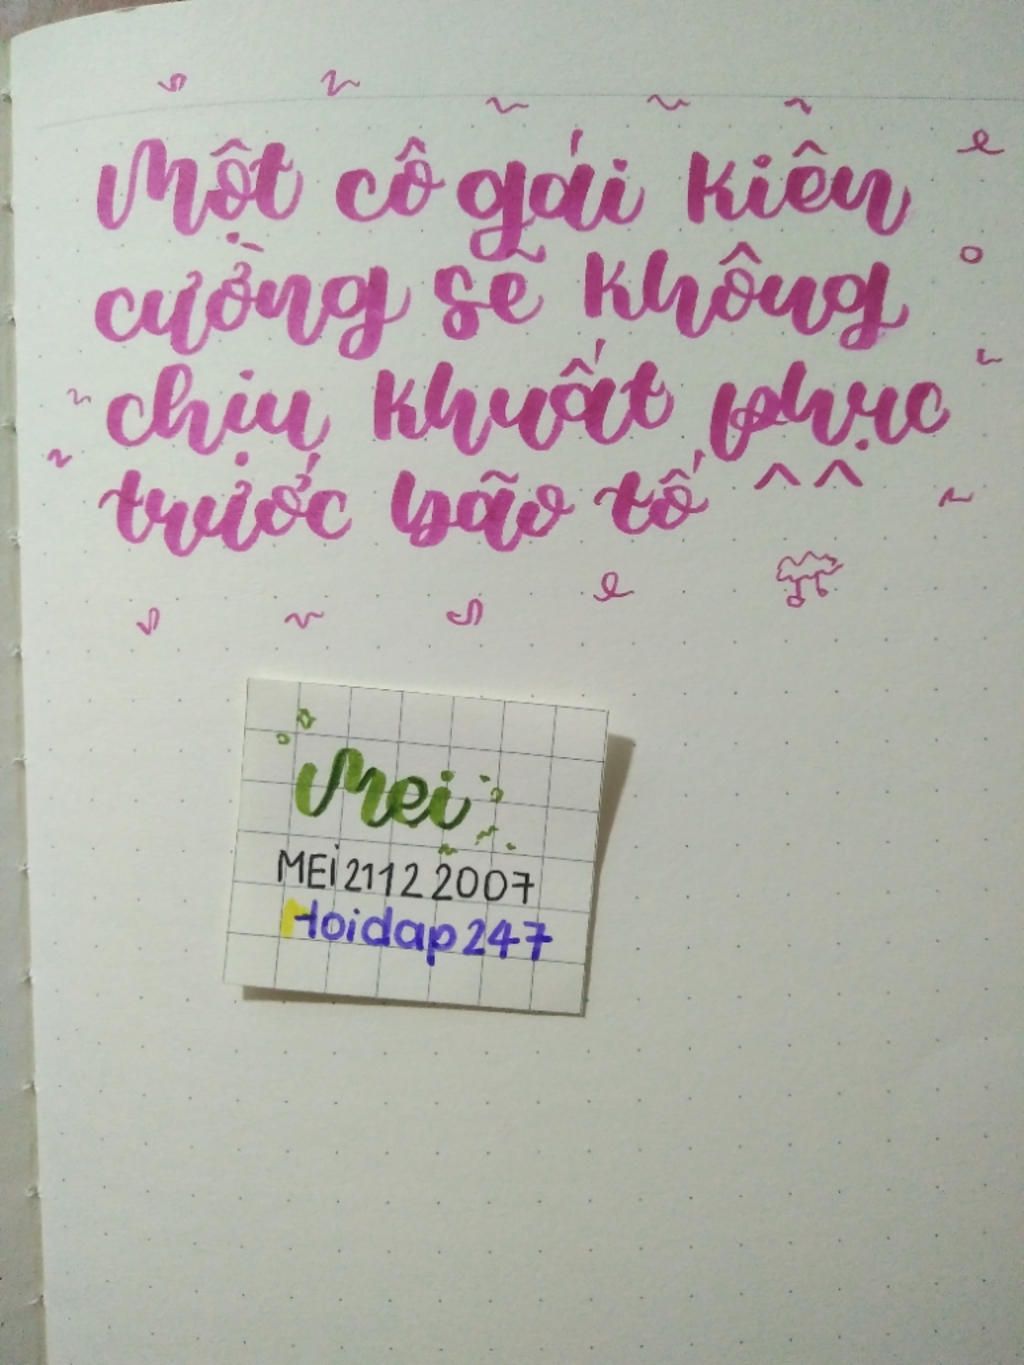 Một cô gái kiên
cường sẽ không
chịu khuất phục
trước bão tố ^^
Mei
MEi21122007
Hoidap247